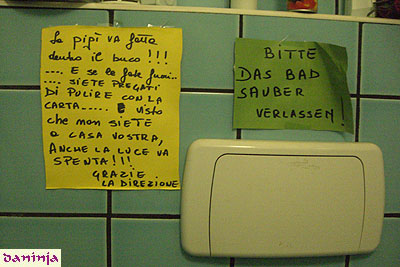 La pipì va fatta
dentro il buco!!!
.... E se la fate fuori...
.... SIETE PREGATI
DI PULIRE CON LA
CARTA..... E VISTO
che non SIETE
A CASA VOSTRA,
ANCHE LA LUCE VA
SPENTA!!!
GRAZIE
LA DIREZIONE
BITTE
DAS BAD
SAUBER
VERLASSEN!
daninja